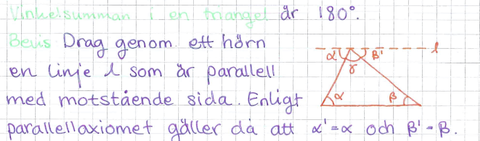 Vinkelsumman i en triangel är 180°.
Bevis Drag genom ett hörn
en linje l som är parallell
med motstående sida. Enligt
parallellaxiomet gäller då att α' = α och β' = β.
α' γ β' l
α β